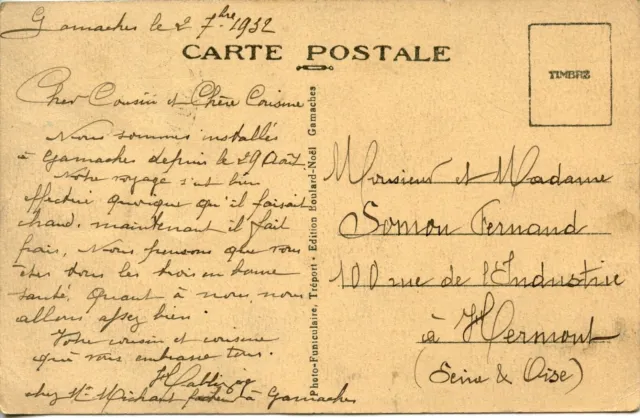 Gamaches le 2 7bre 1932
CARTE POSTALE
TIMBRE
Cher Cousin et Chère Cousine
Nous sommes installés
à Gamaches depuis le 29 Août
Notre voyage s'est bien
effectué quoique qu'il faisait
chaud, maintenant il fait
frais, Nous pensons que vous
êtes tous les trois en bonne
santé. Quant à nous, nous
allons assez bien.
Votre cousin et cousine
que vous embrasse tous.
chez Mr Michaut à Gamaches
Photo-Funiculaire, Tréport - Edition Boulard-Noël Gamaches
Monsieur et Madame
Somon Fernand
100 rue de l'Industrie
à Hermont
(Seine & Oise)